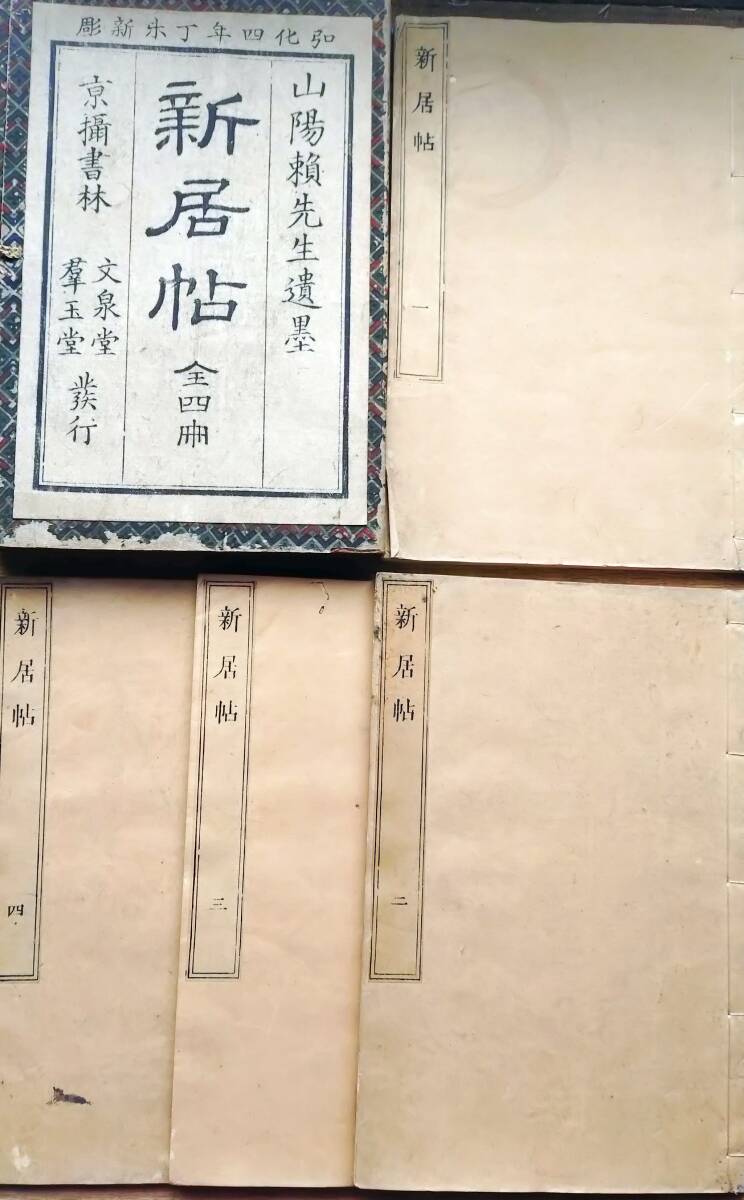 弘化四年丁未新彫
山陽賴先生遺墨
新居帖 全四冊
京攝書林 文泉堂
羣玉堂 發行
新居帖 一
新居帖 二
新居帖 三
新居帖 四